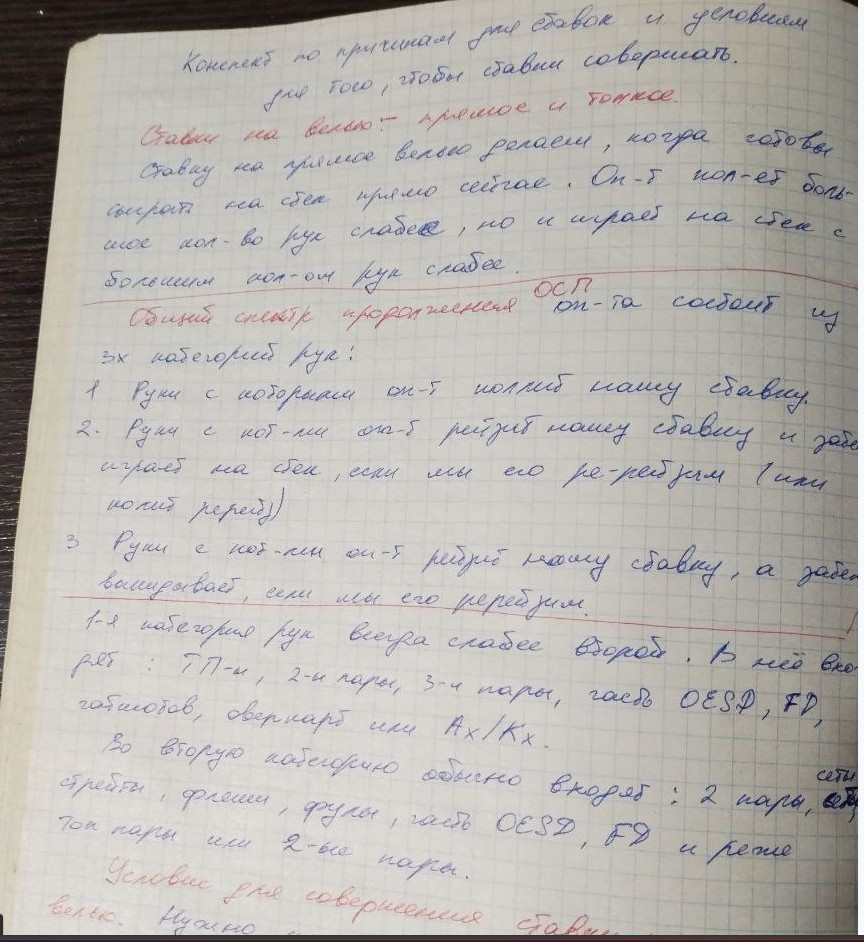 Конспект по причинам для ставок и условиям
для того, чтобы ставки совершать.
Ставки на велью:- прямое и тонкое.
Ставку на прямое велью делаем, когда готовы
сыграть на стек прямо сейчас. Оп-т кол-ет боль-
шое кол-во рук слабее, но и играет на стек с
большим кол-ом рук слабее.
Общий спектр продолжения ОСП оп-та состоит из
3х категорий рук:
1 Руки с которыми оп-т коллит нашу ставку.
2. Руки с кот-ми оп-т рейзит нашу ставку и зате
играет на стек, если мы его ре-рейзим (или
колит ререйз)
3 Руки с кот-ми оп-т рейзит нашу ставку, а зате
выкидывает, если мы его ререйзим.
1-я категория рук всегда слабее второй. В неё вхо-
дят: ТП-ы, 2-и пары, 3-и пары, часть OESD, FD,
гатшотов, оверкарт или Ax/Kx.
Во вторую категорию обычно входят: 2 пары, сеты
стрейты, флеши, фулы, часть OESD, FD и реже
топ пары или 2-ые пары.
Условие для совершения ставки
велью. Нужно